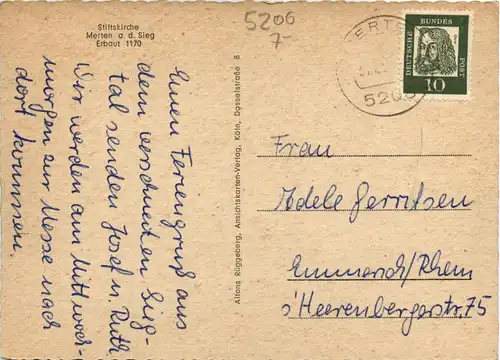 Stiftskirche
Merten a. d. Sieg
Erbaut 1170
5206
7-
Einen Feriengruß aus
dem verschneiten Sieg-
tal senden Josef u. Ruth
Wir werden am Mittwoch-
morgen zur Messe nach
dort kommen.
Alfons Rüggeberg, Ansichtskarten-Verlag, Köln, Dasselstraße 8
MERTE
520
DEUTSCHE BUNDESPOST
10
Frau
Adele Gerritsen
Emmerich/Rhein
s'Heerenbergerstr. 75